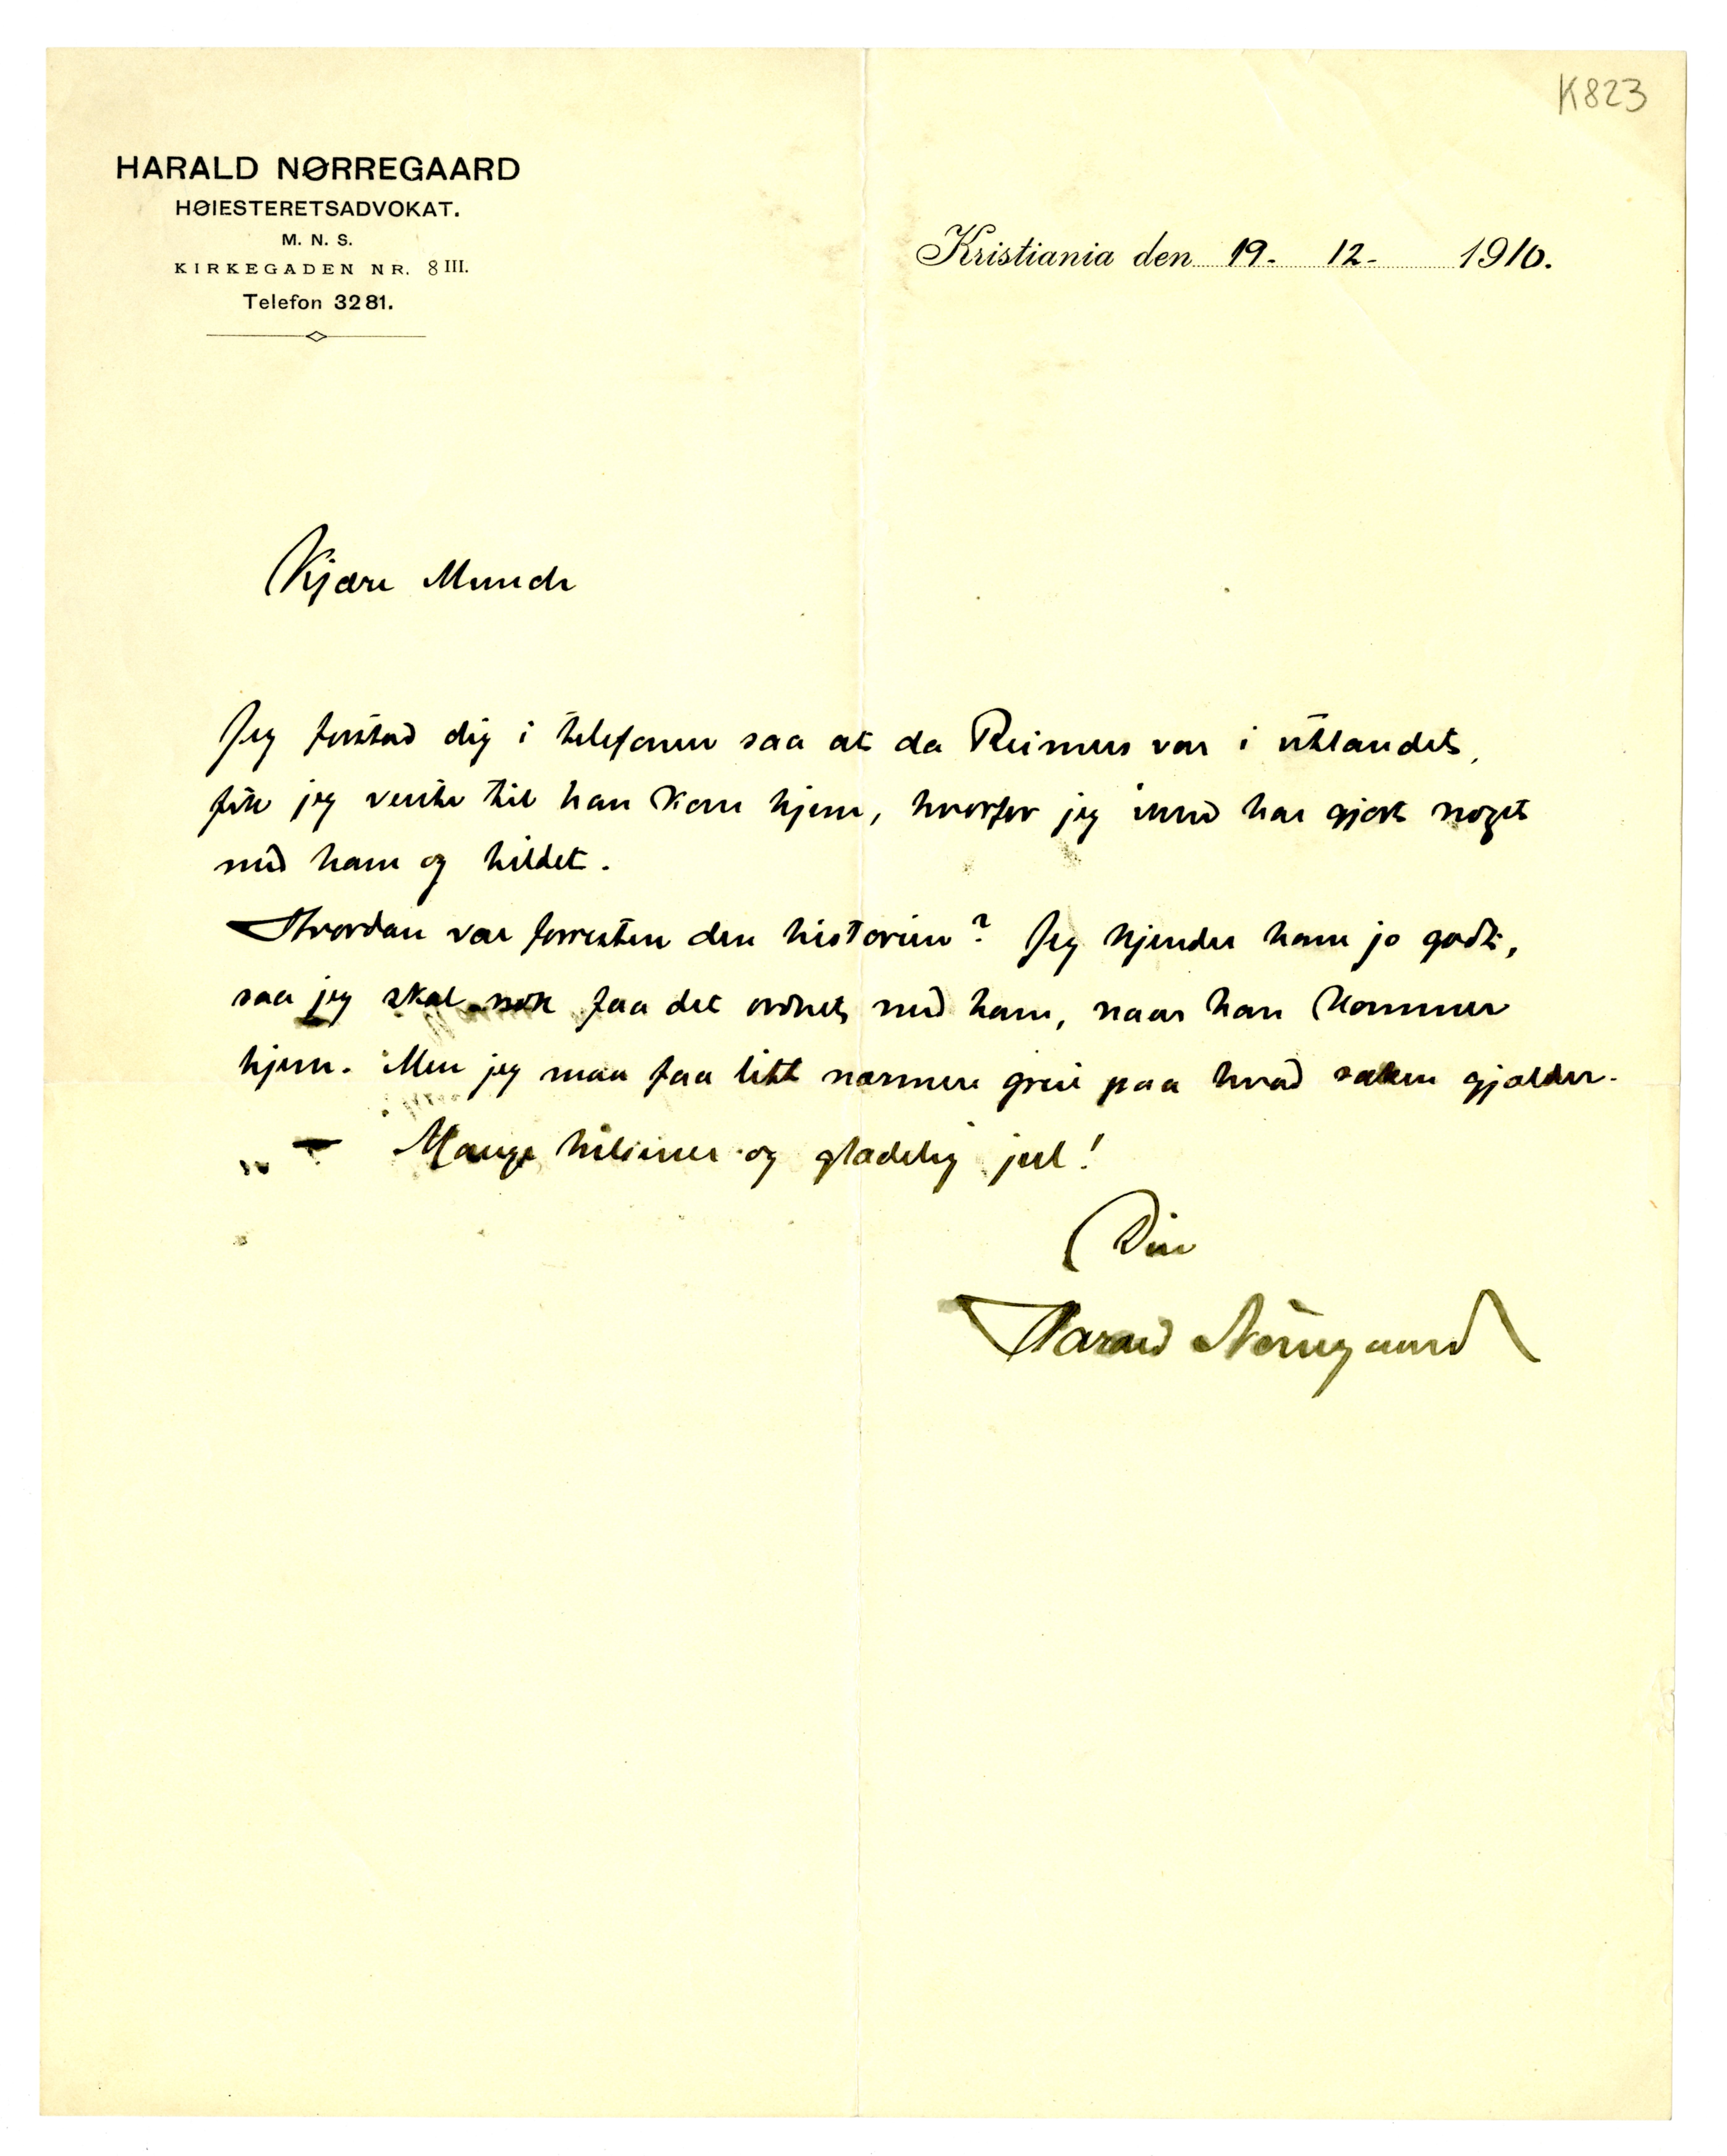 K823
HARALD NØRREGAARD
HØIESTERETSADVOKAT.
M. N. S.
KIRKEGADEN NR. 8 III.
Telefon 3281.
Kristiania den 19. 12. 1910.
Kjære Munch
Jeg forstod dig i telefonen saa at da Reimers var i utlandet,
fik jeg vente til han kom hjem, hvorfor jeg intet har gjort noget
med ham og billdet.
Hvordan var forresten den historien? Jeg kjender ham jo godt,
saa jeg skal nok faa det ordnet med ham, naar han kommer
hjem. Men jeg maa faa litt nærmere greie paa hvad saken gjælder.
– Mange hilsener og glædelig jul!
Din
Harald Nørregaard